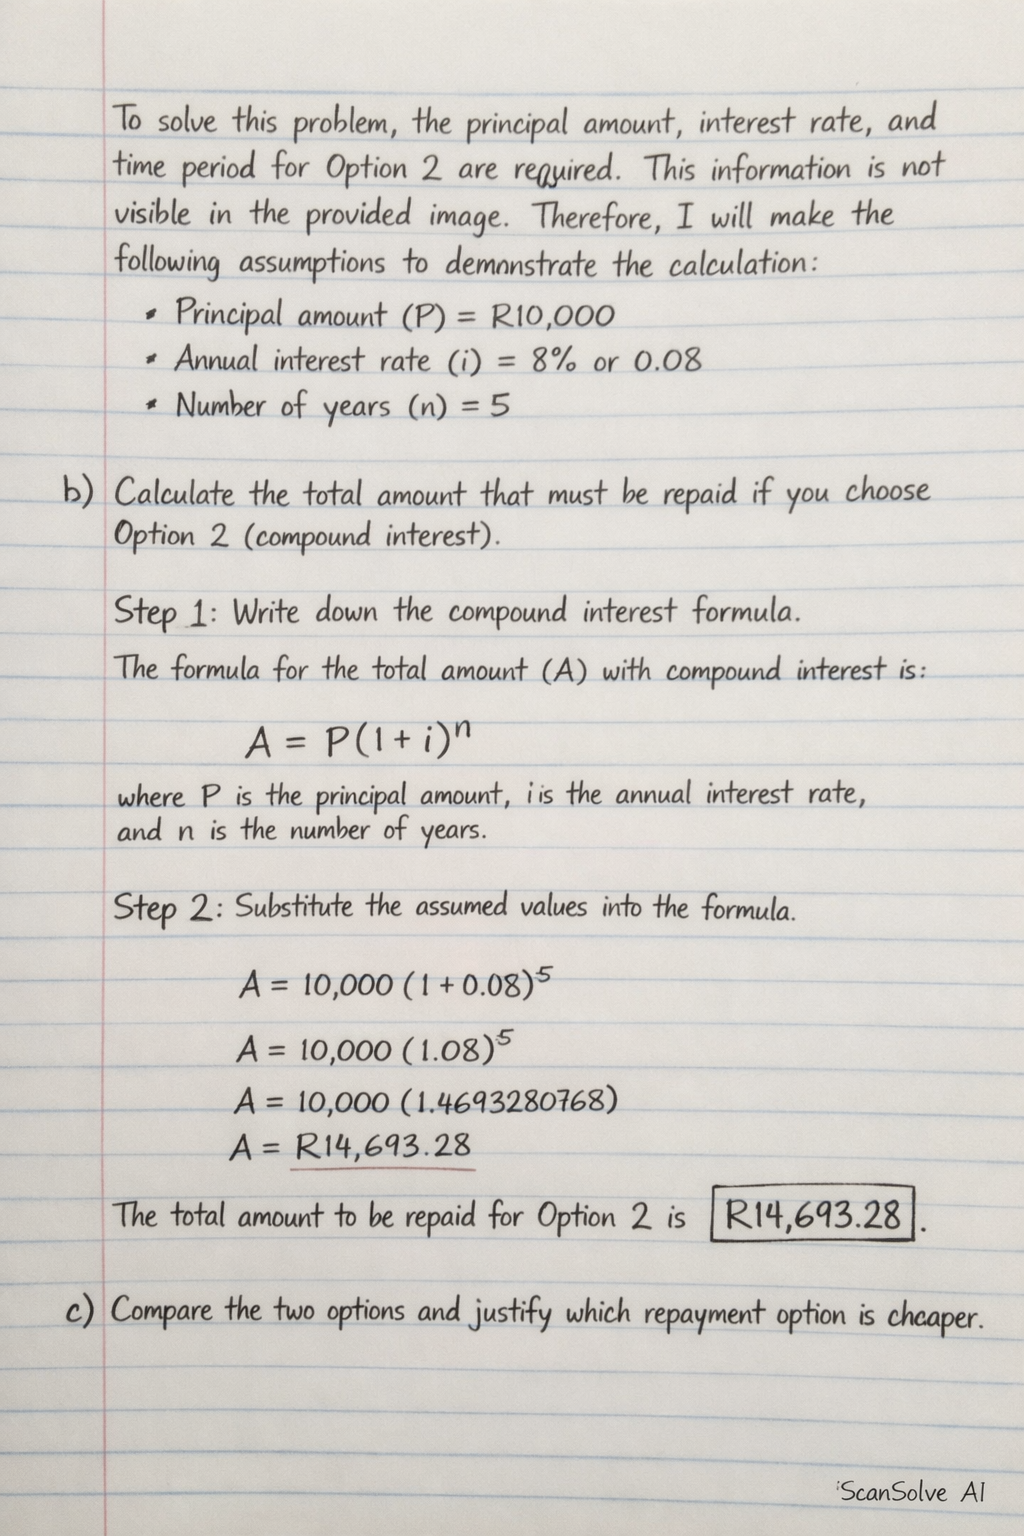 To solve this problem, the principal amount, interest rate, and
time period for Option 2 are required. This information is not
visible in the provided image. Therefore, I will make the
following assumptions to demonstrate the calculation:
• Principal amount (P) = R10,000
• Annual interest rate (i) = 8% or 0.08
• Number of years (n) = 5
b) Calculate the total amount that must be repaid if you choose
Option 2 (compound interest).
Step 1: Write down the compound interest formula.
The formula for the total amount (A) with compound interest is:
A = P(1 + i)ⁿ
where P is the principal amount, i is the annual interest rate,
and n is the number of years.
Step 2: Substitute the assumed values into the formula.
A = 10,000 (1 + 0.08)⁵
A = 10,000 (1.08)⁵
A = 10,000 (1.4693280768)
A = R14,693.28
The total amount to be repaid for Option 2 is R14,693.28.
c) Compare the two options and justify which repayment option is cheaper.
ScanSolve AI